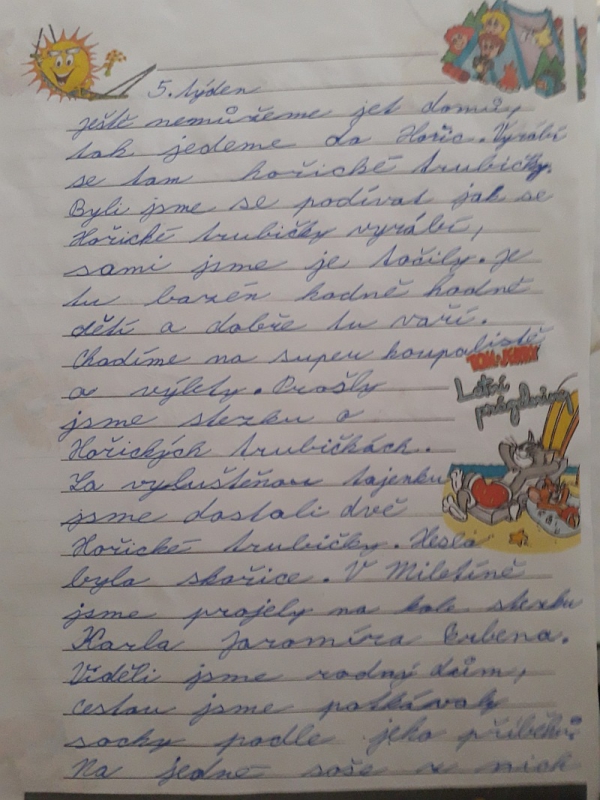 5. týden
ještě nemůžeme jet domů,
tak jedeme do Hořic. Vyrábí
se tam hořické trubičky.
Byli jsme se podívat jak se
Hořické trubičky vyrábí,
sami jsme je točily. Je
tu bazén hodně hodně
dětí a dobře tu vaří.
Chodíme na super koupaliště
TOM & JERRY
a výlety. Prošly
Letní
prázdniny
jsme stezku o
Hořických trubičkách.
Za vyluštěnou tajenku
jsme dostali dvě
Hořické trubičky. Heslo
byla skořice. V Miletíně
jsme projely na kole stezku
Karla Jaromíra Erbena.
Viděli jsme rodný dům,
cestou jsme potkávaly
sochy podle jeho příběhů.
Na jedné soše z nich